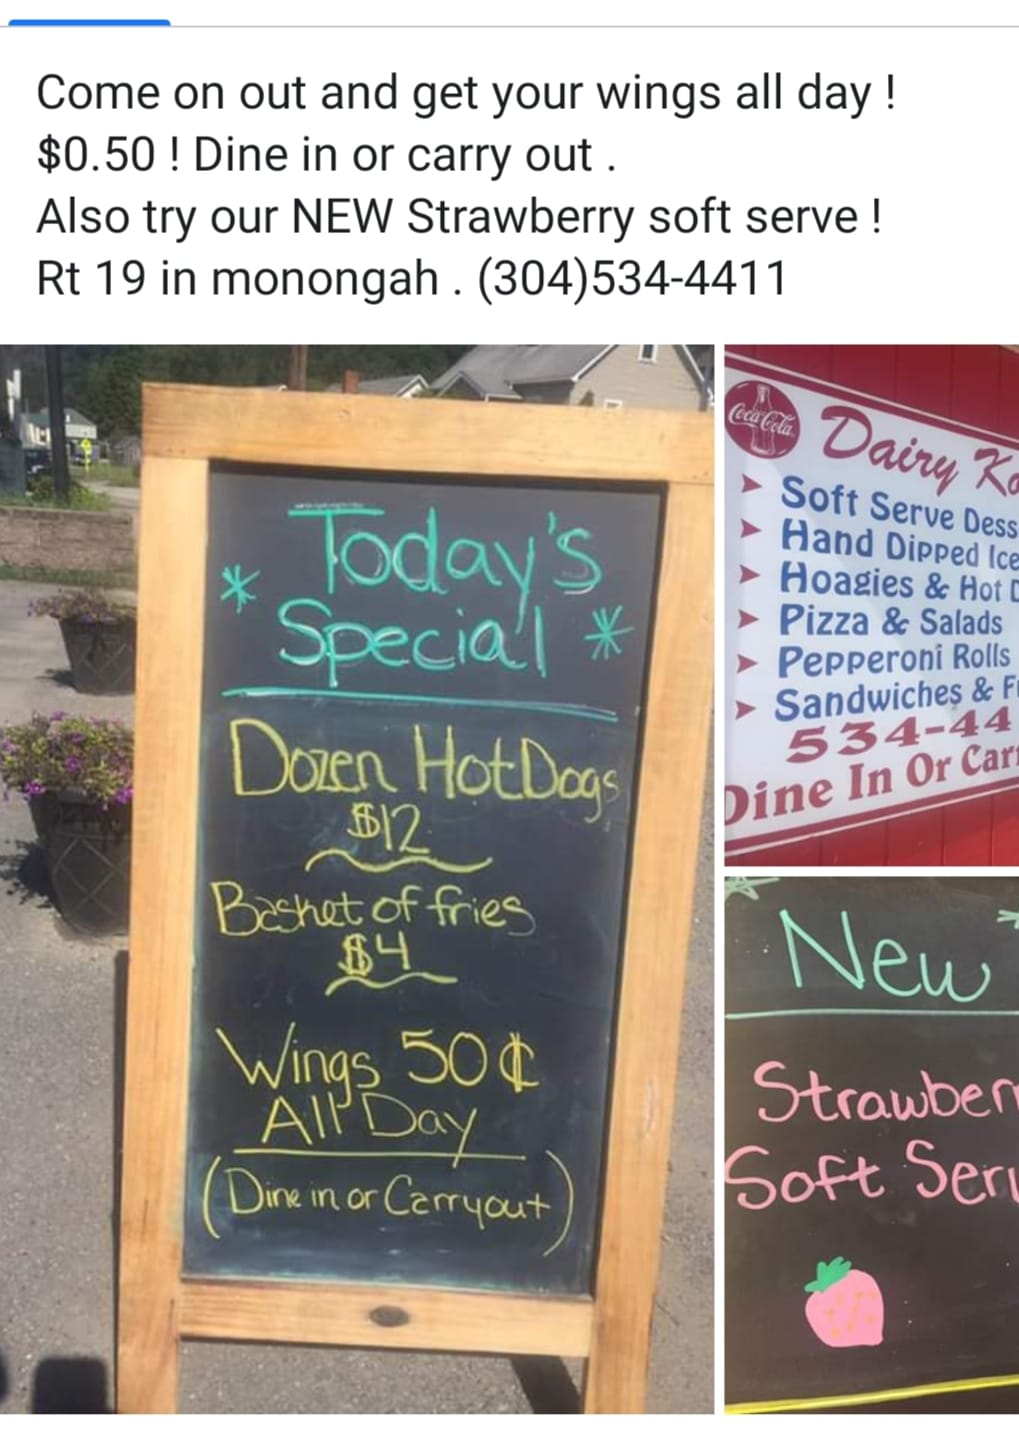 Come on out and get your wings all day !
$0.50 ! Dine in or carry out .
Also try our NEW Strawberry soft serve !
Rt 19 in monongah . (304)534-4411
* Today's
Special *
Dozen Hot Dogs
$12
Basket of fries
$4
Wings 50¢
All Day
(Dine in or Carryout)
Coca-Cola
Dairy
Soft Serve
Hand Dipped
Hoagies & Hot
Pizza & Salads
Pepperoni Rolls
Sandwiches &
534-44
Dine In Or
New
Soft